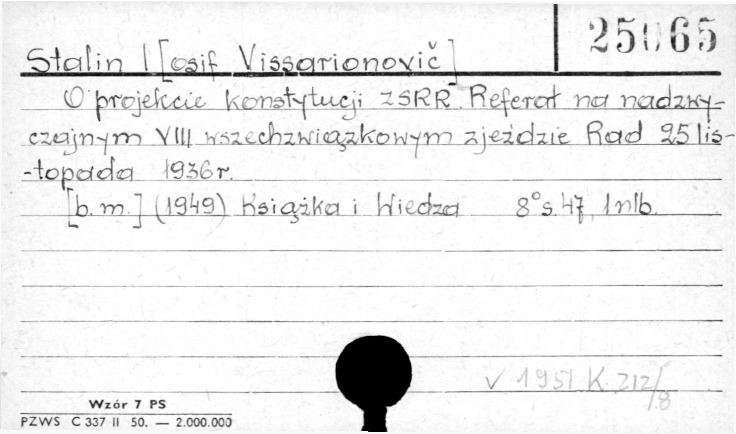 25065
Stalin I[osif Vissarionovič]
O projekcie konstytucji ZSRR. Referat na nadzwy-
czajnym VIII wszechzwiązkowym zjeździe Rad 25 lis-
-topada 1936 r.
[b.m.] (1949) Książka i Wiedza 8° s. 47, 1 nlb.
v 1951 K. 212/8
Wzór 7 PS
PZWS C 337 II 50. — 2.000.000